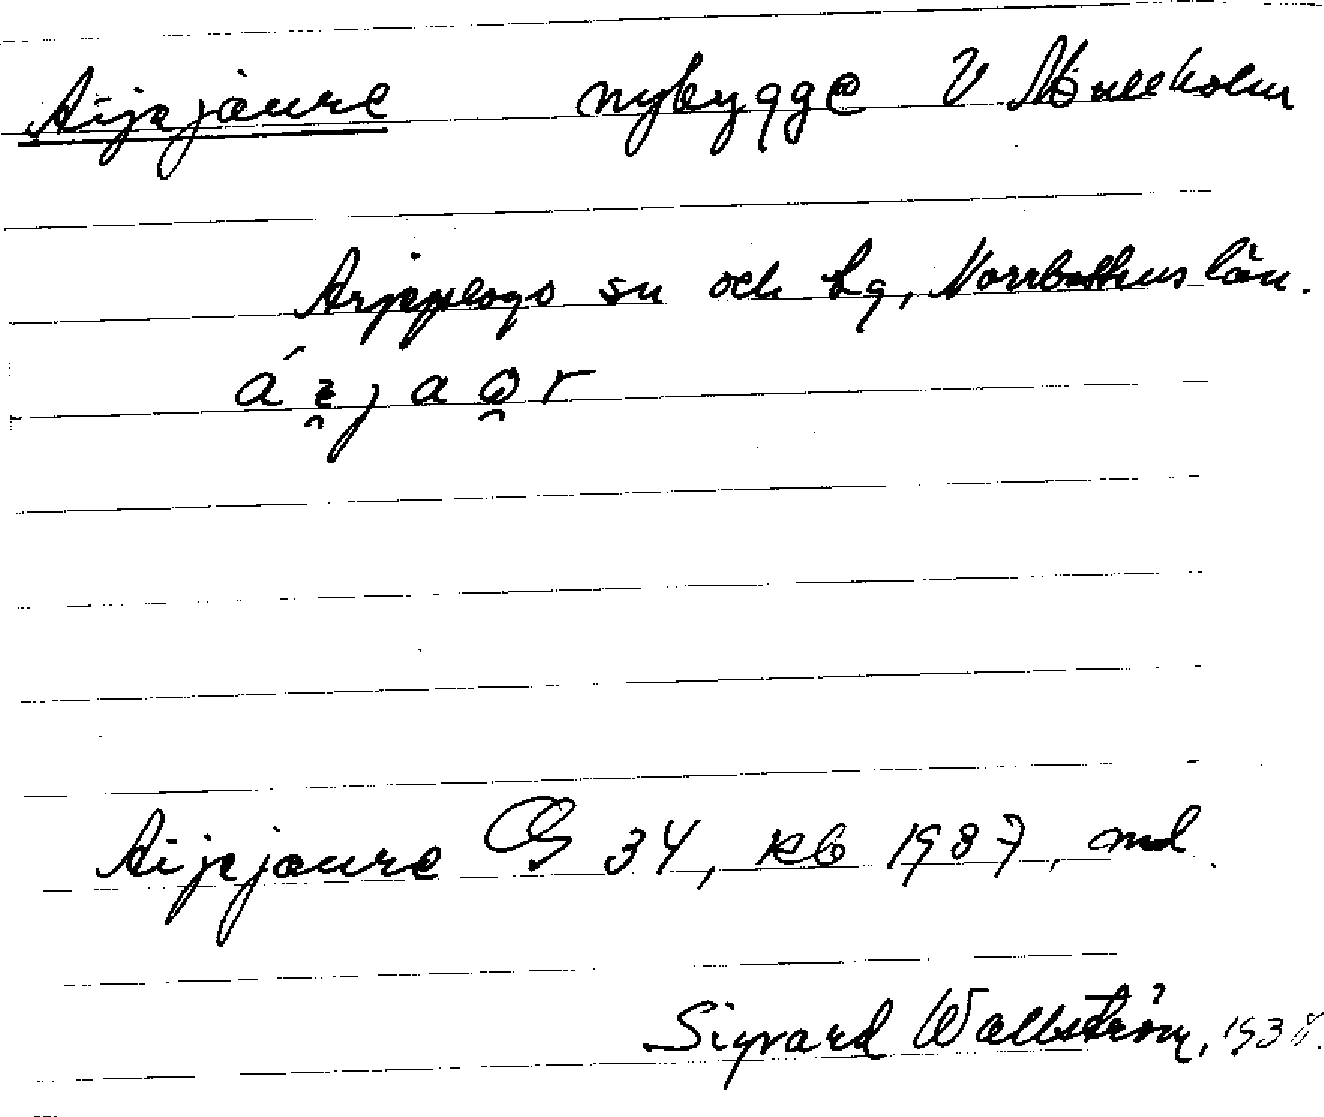 Aijajaure nybygge V Mullholm
Arjeplogs sn och lg, Norrbottens län.
Aijajaure GS 34, kb 1937, md.
Sigvard Wallström, 1938.